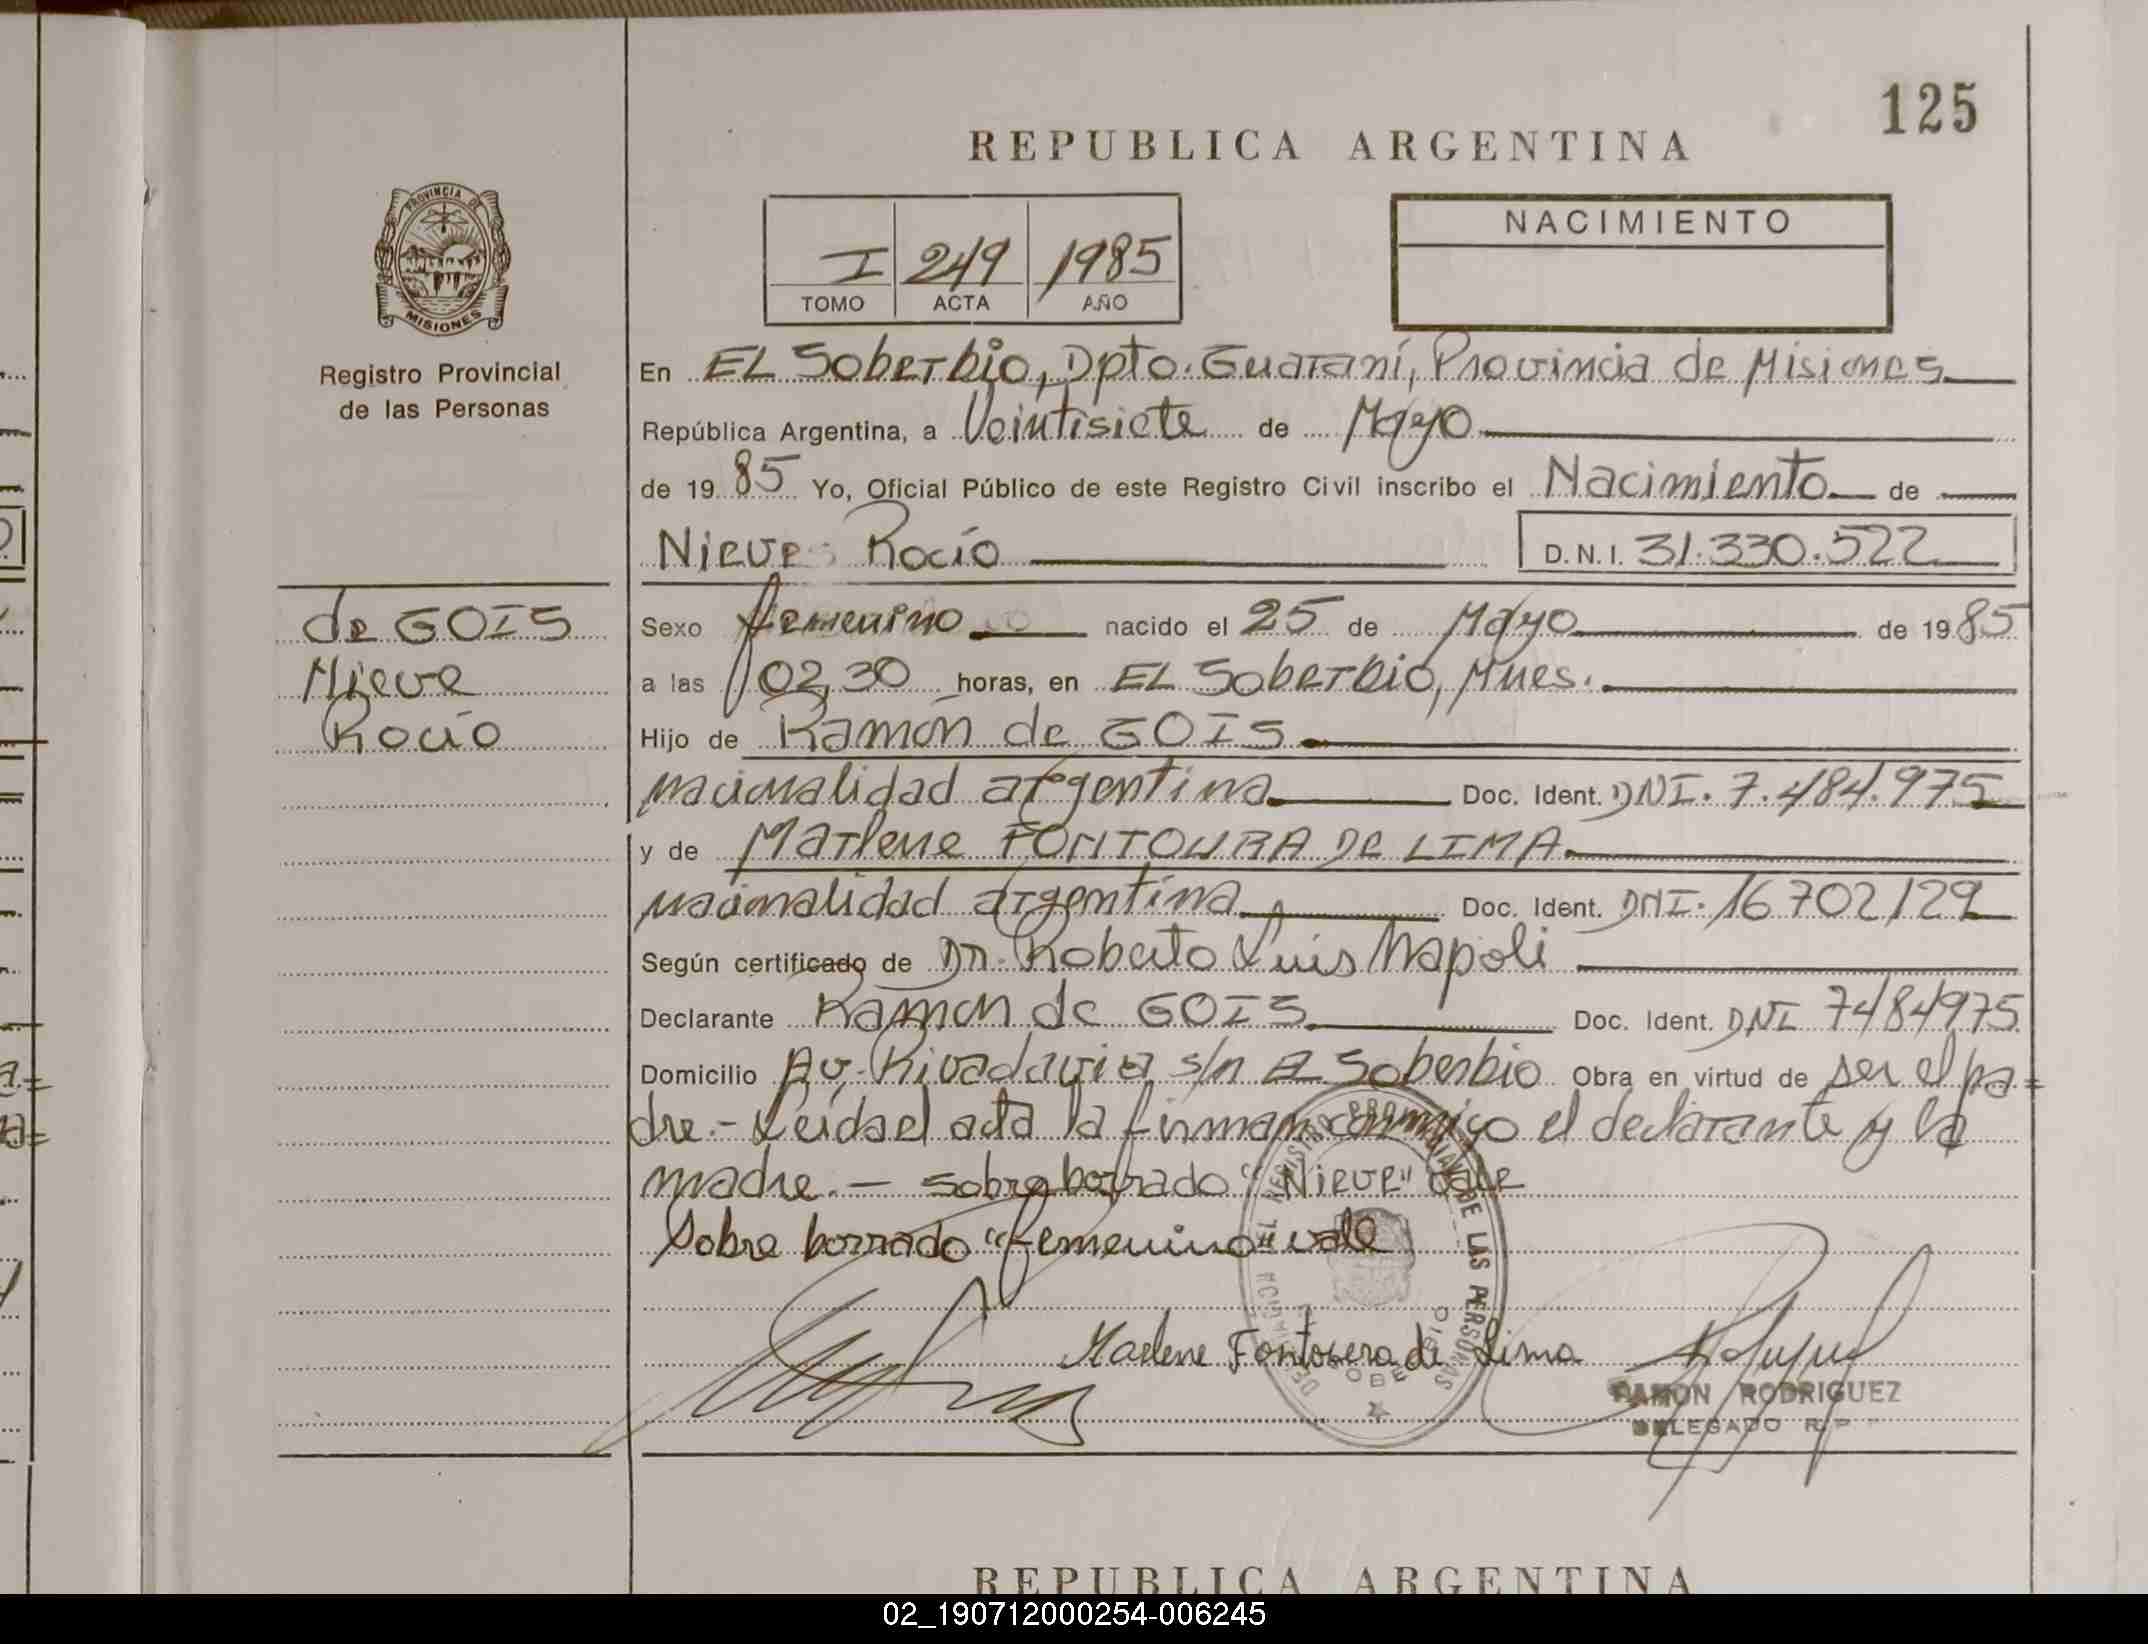 125
REPUBLICA ARGENTINA
PROVINCIA DE
MISIONES
Registro Provincial
de las Personas
I 249 1985
TOMO ACTA AÑO
NACIMIENTO
En EL Soberbio, Dpto. Guaraní, Provincia de Misiones
República Argentina, a Veintisiete de Mayo
de 1985 Yo, Oficial Público de este Registro Civil inscribo el Nacimiento de
Nieve Rocío D.N.I. 31.330.522
de GOIS
Nieve
Rocío
Sexo femenino nacido el 25 de Mayo de 1985
a las 02,30 horas, en EL Soberbio, Mnes.
Hijo de Ramón de GOIS
nacionalidad argentina Doc. Ident. DNI. 7.484.975
y de Marlene FONTOURA DE LIMA
nacionalidad argentina Doc. Ident. DNI. 16 702 129
Según certificado de Dr. Roberto Luis Napoli
Declarante Ramon de GOIS Doc. Ident. DNI 7484975
Domicilio Av. Rivadavia s/n El Soberbio Obra en virtud de ser el pa=
dre.- Leida el acta la firman conmigo el declarante y la
madre.- sobre borrado "Nieve" vale
Sobre borrado "femenino" vale
Marlene Fontoura de Lima
RAMON RODRIGUEZ
DELEGADO R.P.P
REPUBLICA ARGENTINA
02_190712000254-006245